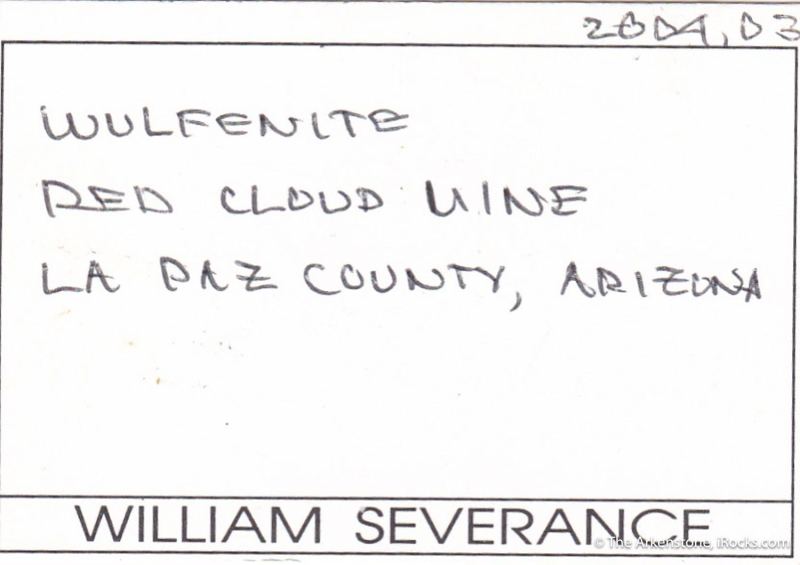 2004,03
WULFENITE
RED CLOUD MINE
LA PAZ COUNTY, ARIZONA
WILLIAM SEVERANCE
© The Arkenstone, iRocks.com